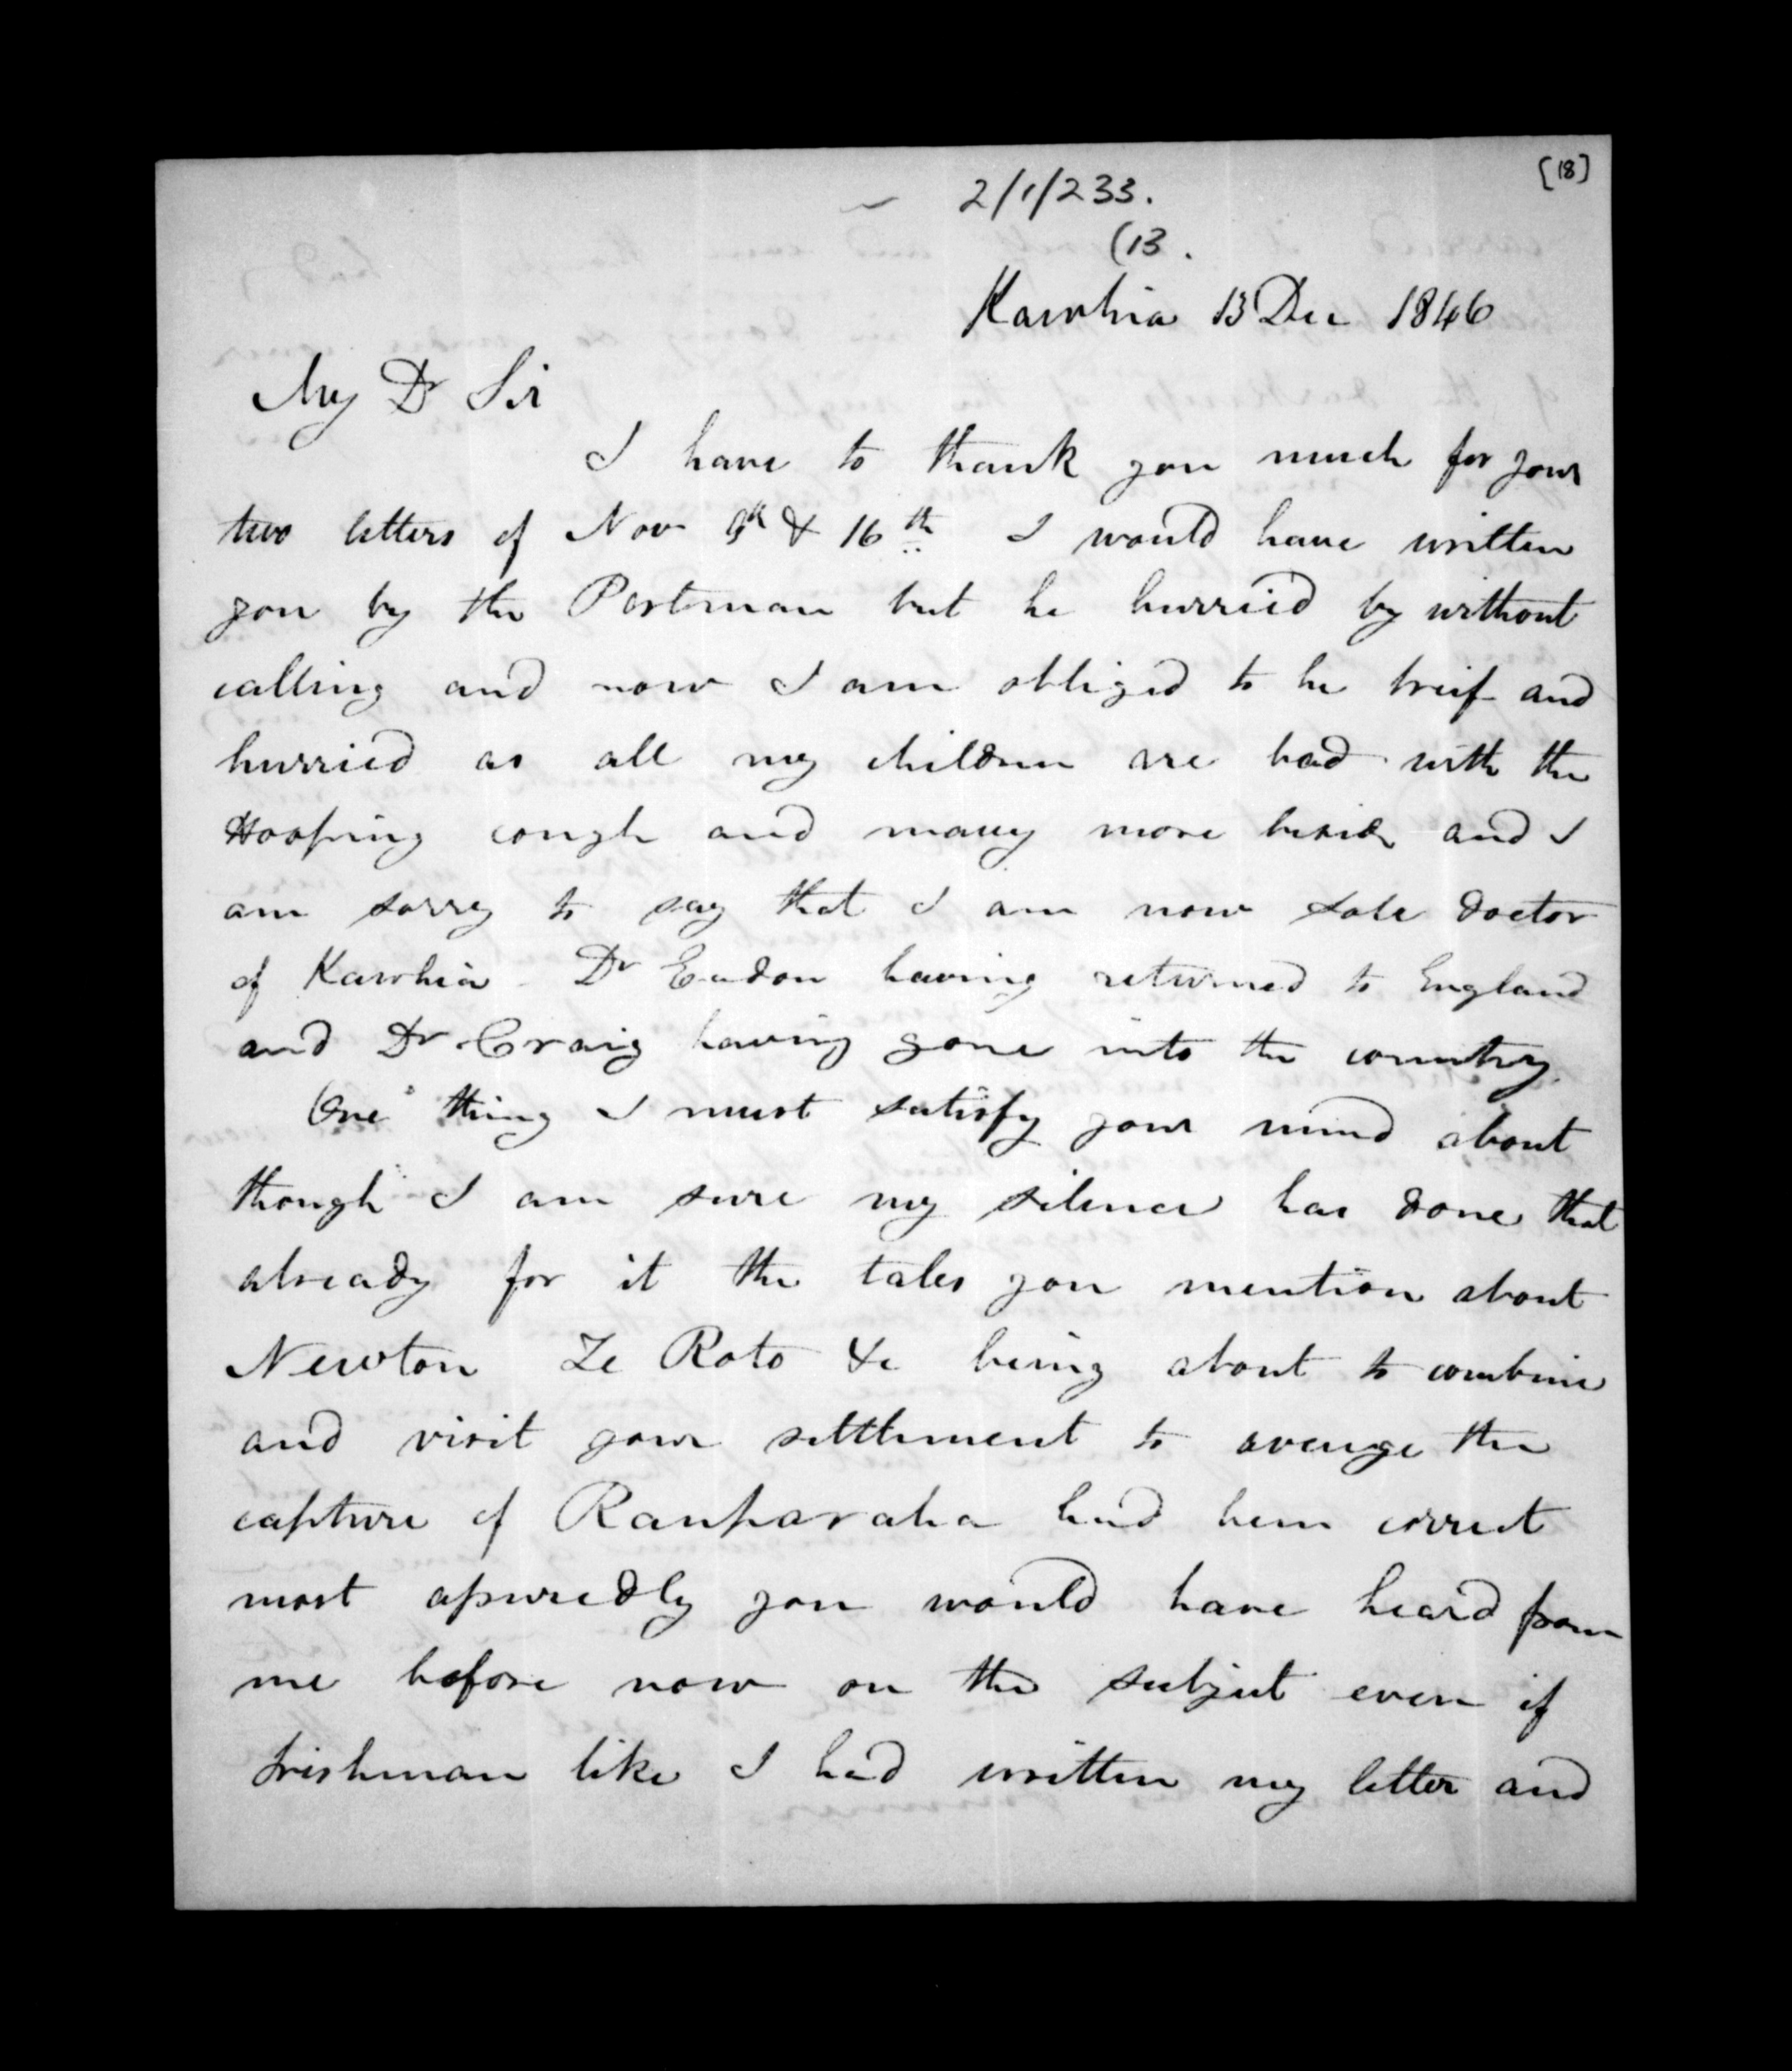 [18]
2/1/233.
(13.
Kawhia 13 Dec 1846
My Dr Sir
I have to thank you much for your
two letters of Nov 9th & 16th I would have written
you by the Postman but he hurried by without
calling and now I am obliged to be breif and
hurried as all my children are bad with the
Hooping cough and many more beside and I
am sorry to say that I am now sole doctor
of Kawhia Dr Eadon having returned to England
and Dr Craig having gone into the country.
One thing I must satisfy your mind about
though I am sure my silence has done that
already for it the tales you mention about
Newton Te Roto &c being about to combine
and visit your settlement to avenge the
capture of Rauparaha had been correct
most assuredly you would have heard from
me before now on the subject even if
Irishman like I had written my letter and